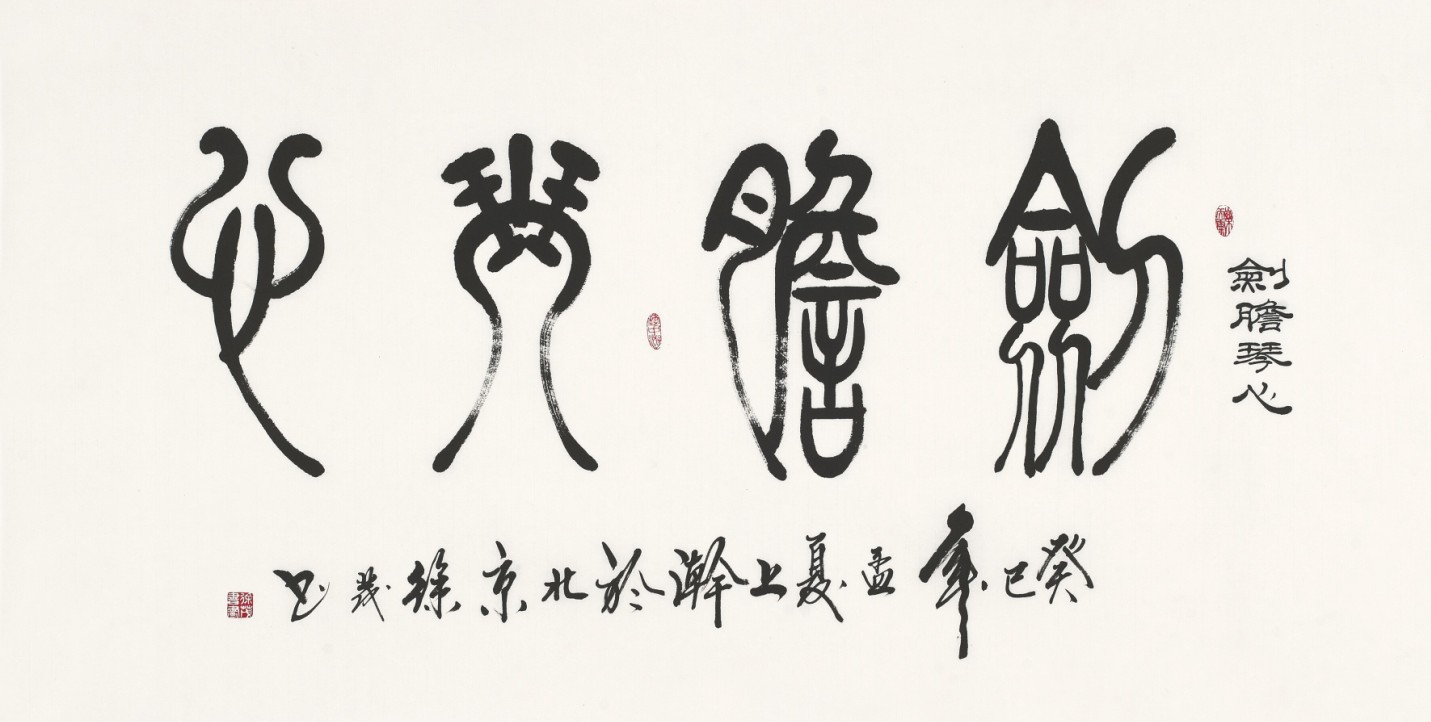 劍膽琴心
劍膽琴心
癸巳年孟夏上澣於北京徐茂书